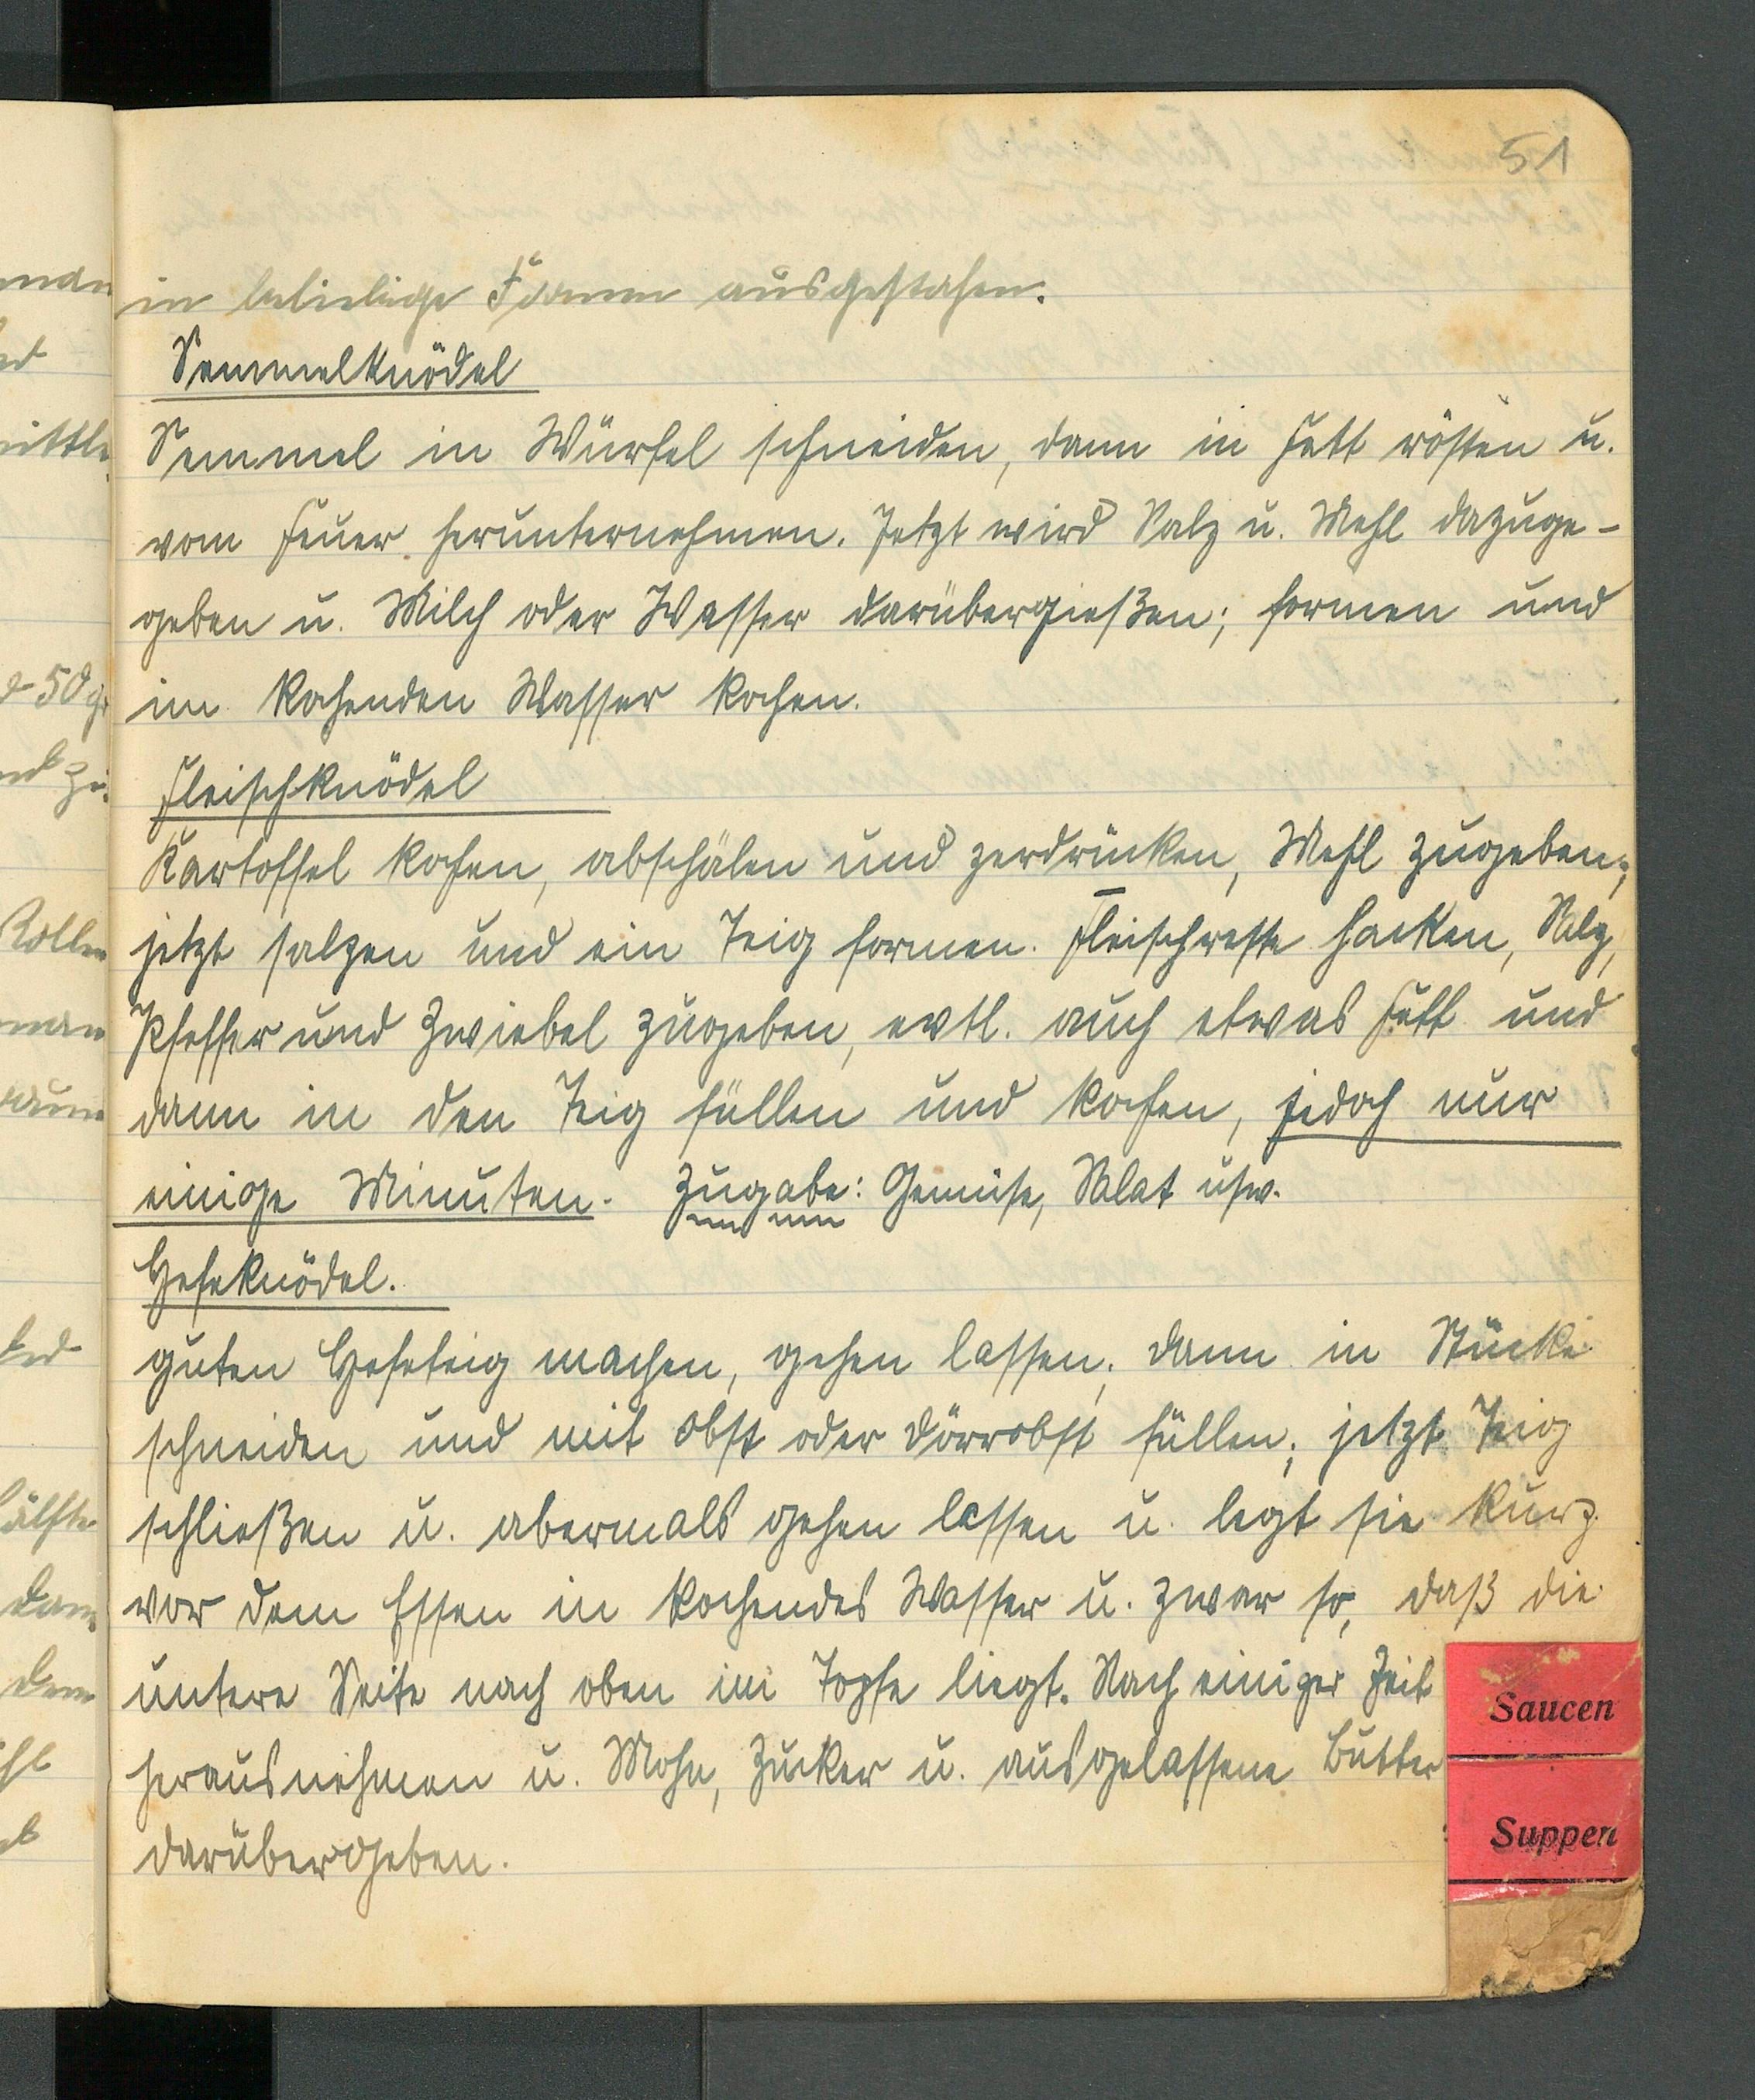 51
in beliebige Formen ausgestochen.
Semmelknödel
Semmel in Würfel schneiden, dann in Fett rösten u.
vom Feuer herunternehmen. Jetzt wird Salz u. Mehl dazuge-
geben u. Milch oder Wasser darübergießen; formen und
im kochenden Wasser kochen.
Fleischknödel
Kartoffel kochen, abschälen und zerdrücken, Mehl zugeben;
jetzt salzen und ein Teig formen. Fleischreste hacken, Salz,
Pfeffer und Zwiebel zugeben, evtl. auch etwas Fett und
dann in den Teig füllen und kochen, jedoch nur
einige Minuten. Zugabe: Gemüse, Salat usw.
Hefeknödel.
guten Hefeteig machen, gehen lassen; dann in Stücke
schneiden und mit Obst oder Dörrobst füllen; jetzt Teig
schließen u. abermals gehen lassen u. legt sie kurz
vor dem Essen in kochendes Wasser u. zwar so, daß die
untere Seite nach oben im Topfe liegt. Nach einiger Zeit
herausnehmen u. Mohn, Zucker u. ausgelassene Butter
darübergeben.
Saucen
Suppen